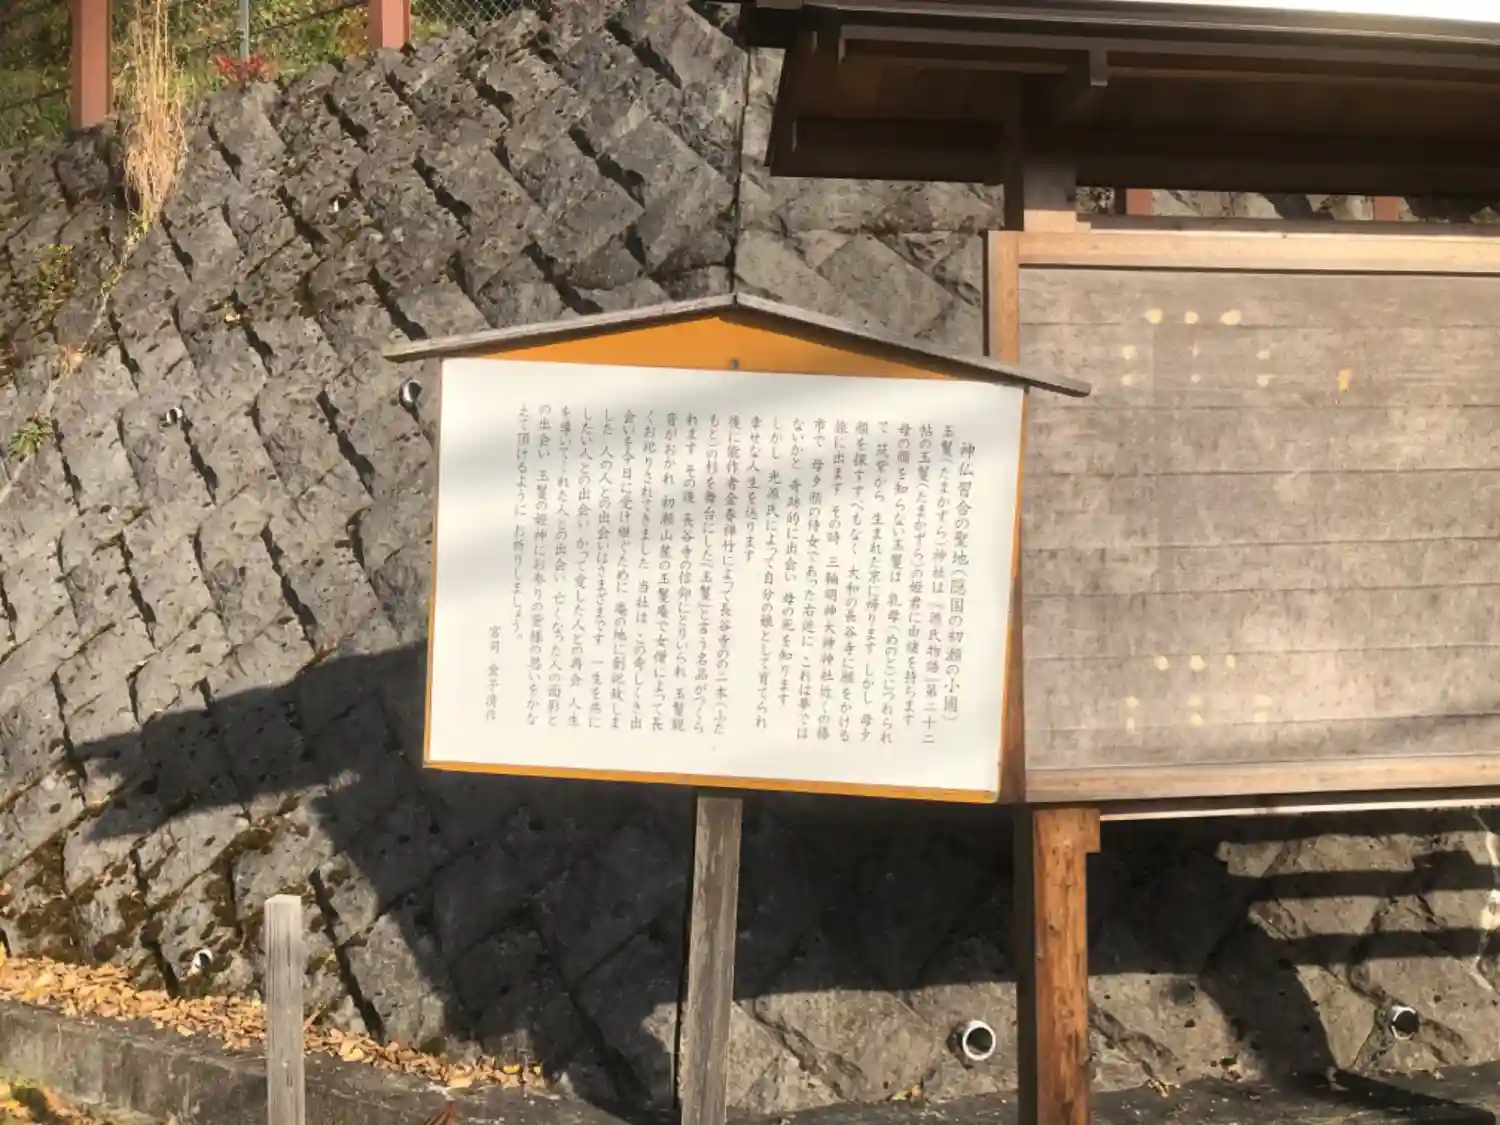 神仏習合の聖地(隠国の初瀬の小國)
玉鬘(たまかずら)神社は『源氏物語』第二十二
帖の玉鬘(たまかずら)の姫君に由緒を持ちます
母の顔を知らない玉鬘は 乳母(めのと)につれられ
て 筑紫から 生まれた京に帰ります しかし 母夕
顔を探すすべもなく 大和の長谷寺に願をかける
旅に出ます その時 三輪明神大神神社近くの椿
市で 母夕顔の侍女であった右近に これは夢では
ないかと 奇跡的に出会い 母の死を知ります
しかし 光源氏によって自分の娘として育てられ
幸せな人生を送ります
後に能作者金春禅竹によって長谷寺の二本(ふた
もと)の杉を舞台にした『玉鬘』と言う名品がつくら
れます その後 長谷寺の信仰にとりいられ 玉鬘観
音がおかれ 初瀬山麓の玉鬘庵で女僧によって長
くお祀りされてきました 当社は この奇しくき出
会いを今日に受け継ぐために 庵の地に創祀致しま
した 人の人との出会いはさまざまです 一生を共に
したい人との出会い かつて愛した人との再会 人生
を導いてくれた人との出会い 亡くなった人の面影と
の出会い 玉鬘の姫神にお参りの皆様の思いをかな
えて頂けるように お祈りしましょう。
宮司 金子清作